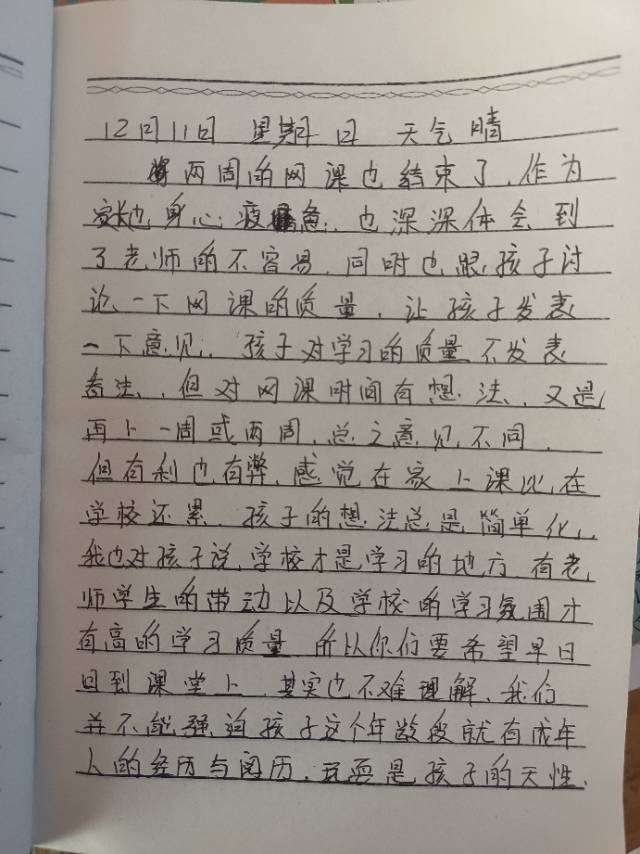 12月11日 星期日 天气晴
两周的网课也结束了,作为
家长也身心疲惫,也深深体会到
了老师的不容易,同时也跟孩子讨
论一下网课的质量,让孩子发表
一下意见,孩子对学习的质量不发表
看法,但对网课时间有想法,又是
再上一周或两周,总之意见不同,
但有利也有弊,感觉在家上课比在
学校还累,孩子的想法总是简单化,
我也对孩子说,学校才是学习的地方,有老
师学生的带动以及学校的学习氛围才
有高的学习质量,所以你们要希望早日
回到课堂上,其实也不难理解,我们
并不能强迫孩子这个年龄段就有成年
人的经历与阅历,玩耍是孩子的天性.